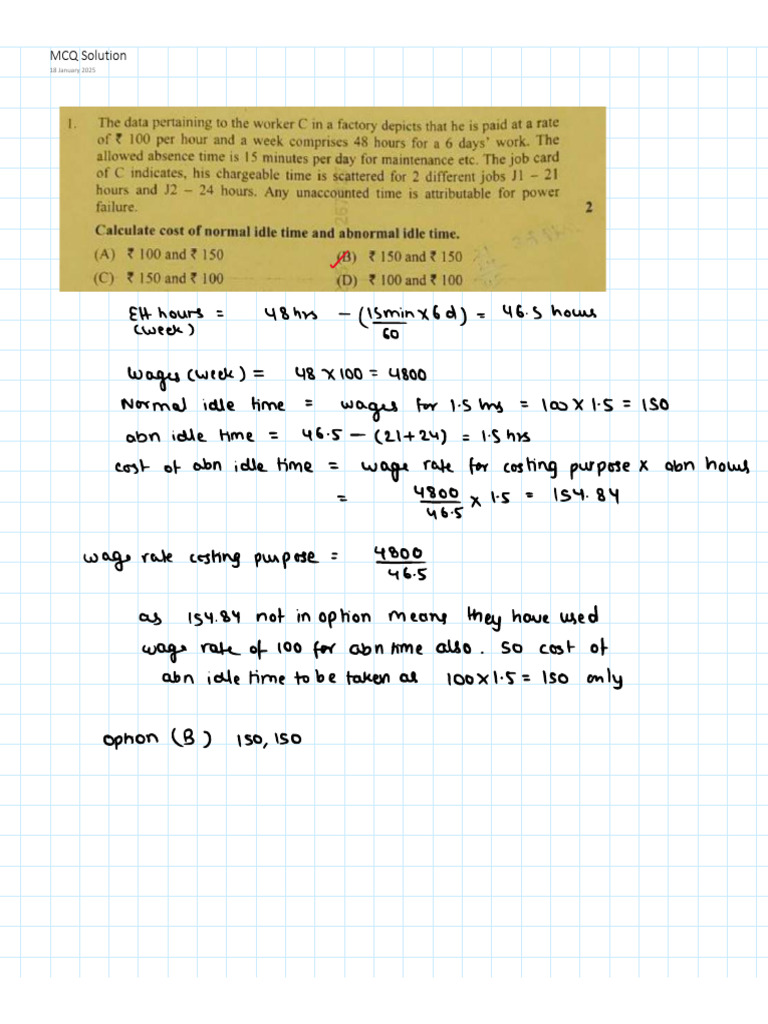 MCQ Solution
18 January 2025
1. The data pertaining to the worker C in a factory depicts that he is paid at a rate
of ₹ 100 per hour and a week comprises 48 hours for a 6 days' work. The
allowed absence time is 15 minutes per day for maintenance etc. The job card
of C indicates, his chargeable time is scattered for 2 different jobs J1 – 21
hours and J2 – 24 hours. Any unaccounted time is attributable for power
failure. 2
Calculate cost of normal idle time and abnormal idle time.
(A) ₹ 100 and ₹ 150 (B) ₹ 150 and ₹ 150
(C) ₹ 150 and ₹ 100 (D) ₹ 100 and ₹ 100
Eff hours = 48 hrs – (15min/60 x 6 d) = 46.5 hours
(week)
Wages (week) = 48 x 100 = 4800
Normal idle time = wages for 1.5 hrs = 100 x 1.5 = 150
abn idle time = 46.5 – (21+24) = 1.5 hrs
cost of abn idle time = wage rate for costing purpose x abn hours
= 4800/46.5 x 1.5 = 154.84
wage rate costing purpose = 4800/46.5
as 154.84 not in option means they have used
wage rate of 100 for abn time also. So cost of
abn idle time to be taken as 100x1.5 = 150 only
option (B) 150, 150